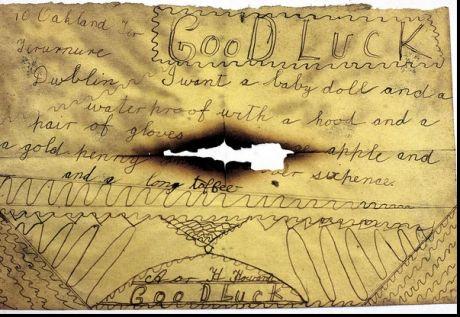 10 Oakland Ter
GOOD LUCK
Terurnure
Dublin I want a baby doll and a
waterproof with a hood and a
pair of gloves apple and
a gold penny sixpence
and a long toffee
A or H Howard
GOOD LUCK